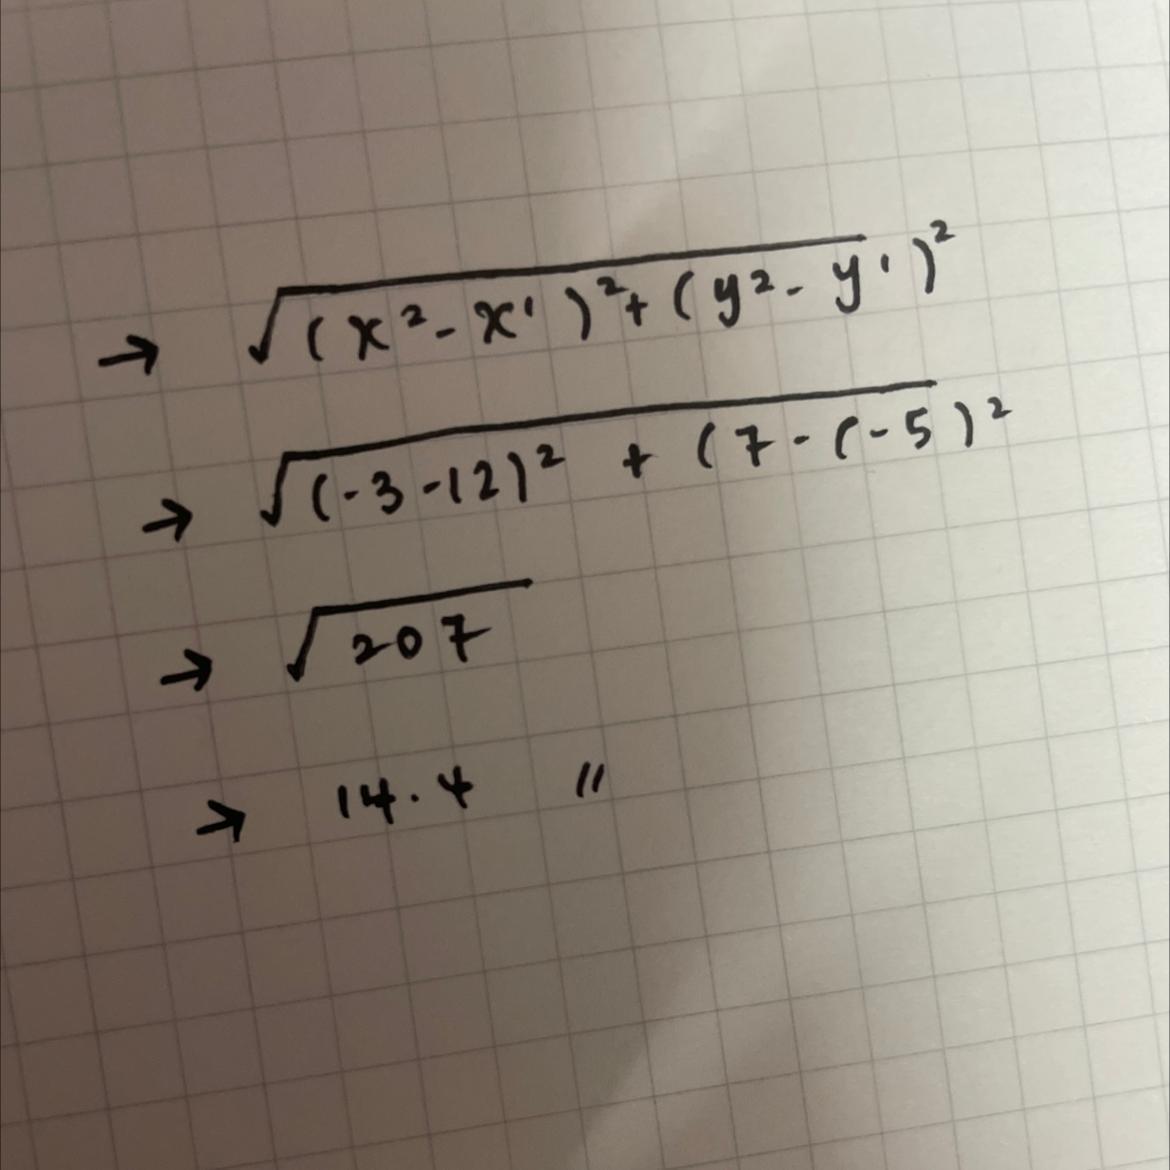 → √(x² - x¹)² + (y² - y¹)²
→ √(-3 -12)² + (7 - (-5)²
→ √207
→ 14.4 //